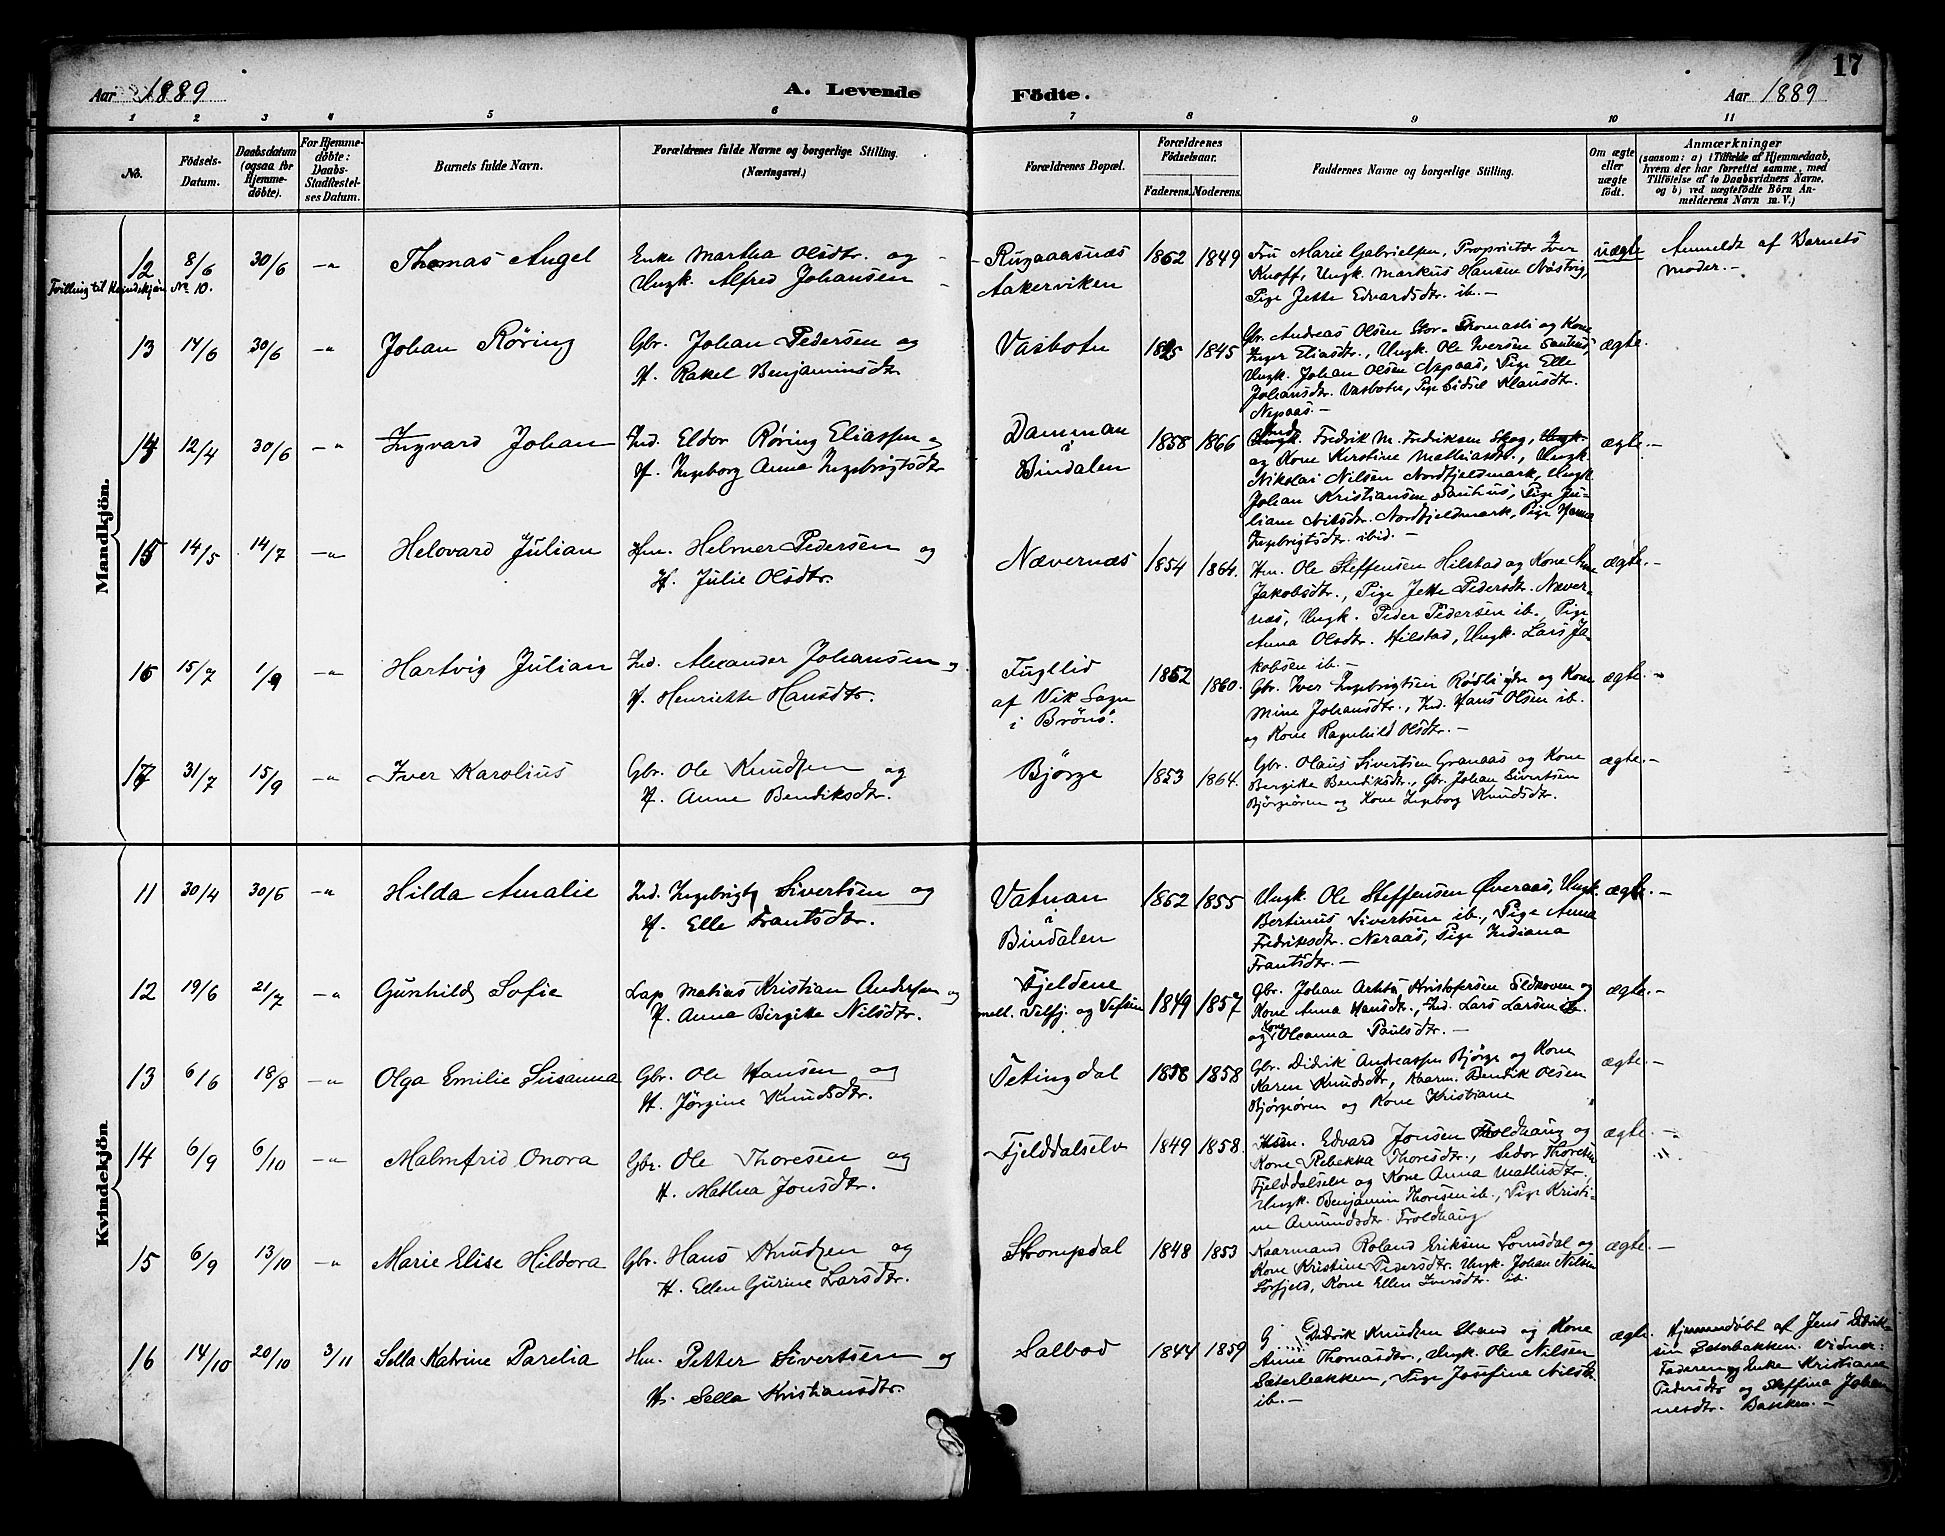 Aar 1889
A. Levende Födte.
Aar 1889
17
1 2 3 4 5 6 7 8 9 10 11
No.
Födsels-
Datum.
Daabsdatum
(ogsaa for
Hjemme-
döbte).
For Hjemme-
döbte:
Daabs-
Stadfæstel-
ses Datum.
Barnets fulde Navn.
Forældrenes fulde Navne og borgerlige Stilling.
(Næringsvei.)
Forældrenes Bopæl.
Forældrenes
Födselsaar.
Faderens. Moderens.
Faddernes Navne og borgerlige Stilling.
Om ægte
eller
uægte
födt.
Anmærkninger
(saasom: a) i Tilfælde af Hjemmedaab,
hvem der har forrettet samme, med
Tilföielse af to Daabsvidners Navne,
og b) ved uægtefödte Börn An-
melderens Navn m. V.)
Mandkjön.
12 8/6 30/6 -"- Thomas Angel
Tvilling til Kvindekjøn No. 10.
Enke Martha Olsdtr. og
Ungk. Alfred Johansen
Rugaaasnæs
Aakerviken
1862 1849
Fru Marie Gabrielsen, Proprietær Iver
Knoff, Ungk. Markus Hansen Nøstvig,
Pige Jette Edvardsdtr. ib. -
uægte
Anmeldt af Barnets
Moder. -
13 17/6 30/6 -"- Johan Røring
Gbr. Johan Pedersen og
H. Rakel Benjaminsdtr
Vasbotn
1825 1845
Gbr. Andreas Olsen Stor-Thomasli og Kone
Inger Eliasdtr., Ungk. Ole Iversen Sanhus,
Ungk. Johan Olsen Nepaas, Pige Elle
Johansdtr. Vasbotn, Pige Sidsel Klausdtr.
Nepaas. -
ægte.
14 12/4 30/6 -"- Ingvard Johan
Ind. Eldor Røring Eliassen og
H. Ingeborg Anna Ingebrigtsdtr
Damman
i
Bindalen
1858 1866
Ind. Fredrik M. Fredriksen Skog,
og Kone Kirstine Mathiasdtr., Ungk.
Nikolai Nilsen Nordfjeldmark, Ungk.
Johan Kristiansen Sanhus, Pige Ju-
liane Nilsdtr. Nordfjeldmark, Pige Hanna
Ingebrigtsdtr. ibid. -
ægte. -
15 14/5 14/7 -"- Helovard Julian
Hm. Helmer Pedersen og
H. Julie Olsdtr.
Nævernæs
1854 1864.
Hm. Ole Steffensen Hilstad og Kone Ane
Jakobsdtr., Pige Jette Pedersdtr. Næver-
næs, Ungk. Peder Pedersen ib., Pige
Anna Olsdtr. Hilstad, Ungk. Lars Ja-
kobsen ib. -
ægte. -
16 15/7 1/9 -"- Hartvig Julian
Ind. Alexander Johansen og
H. Henriette Hansdtr.
Fugllid
af Vik Sogn
i Brönö.
1862 1860.
Gbr. Iver Ingebrigtsen Rødli ydre og Kone
Mine Johansdtr., Ind. Hans Olsen ib.
og Kone Ragnhild Olsdtr. -
ægte. -
17 31/7 15/9 -"- Iver Karolius
Gbr. Ole Knudsen og
H. Anne Bendiksdtr.
Bjørge
1853 1864.
Gbr. Olaus Sivertsen Granaas og Kone
Bergitte Bendiksdtr., Gbr. Johan Sivertsen
Bjørgøren og Kone Ingeborg Knudsdtr.
ægte. -
Kvindekjön
11 30/4 30/6 -"- Hilda Amalie
Ind. Ingebrigt Sivertsen og
H. Elle Frantsdtr.
Vatnan
i
Bindalen
1862 1855
Ungk. Ole Steffensen Øveraas, Ungk.
Bertinus Sivertsen ib., Pige Anna
Fredriksdtr. Neraas, Pige Indiana
Frantsdtr. -
ægte. -
12 19/6 21/7 -"- Gunhild Sofie
Lap Matias Kristian Andersen og
H. Anna Birgitte Nilsdtr.
Fjeldene
mell. Velfj. og Vefsen
1849 1857
Gbr. Johan Kristofersen Sildhoven og
Kone Anna Hansdtr., Ind. Lars Larsen ib.
og Kone Oleanna Paulsdtr. -
ægte. -
13 6/6 18/8 -"- Olga Emilie Susanna
Gbr. Ole Hansen og
H. Jørgine Knudsdtr.
Tetingdal
1858 1858
Gbr. Didrik Andreassen Bjørge og Kone
Karen Knudsdtr, Kaarm. Bendik Olsen
Bjørgøren og Kone Kristiane
ægte. -
14 6/9 6/10 -"- Malmfrid Onora
Gbr. Ole Thoresen og
H. Mathea Jonsdtr.
Fjelddalselv
1849 1858.
Edvard Jonsen Troldhaug og
Kone Rebekka Thoresdtr., Sedor Thoresen
Fjelddalselv og Kone Anna Mathisdtr,
Ungk. Benjamin Thoresen ib., Pige Kristi-
ne Amundsdtr. Troldhaug
ægte. -
15 6/9 13/10 -"- Marie Elise Hildora
Gbr. Hans Knudsen og
H. Ellen Gurine Larsdtr.
Strompdal
1848 1853
Kaarmand Roland Eriksen Lomsdal og
Kone Kristine Pedersdtr. Ungk. Johan Nilsen
Sørfjeld, Kone Ellen Iversdtr. ib.
ægte. -
16 14/10 20/10 3/11 Sella Katrine Parelia
Hm. Petter Sivertsen og
H. Sella Kristiansdtr.
Salbod
1844 1859
Didrik Knudsen Strand og Kone
Anne Thomasdtr., Ungk. Ole Nilsen
Sæterbakken, Pige Josefine Nilsdtr.
ib. -
ægte.
Hjemmedøbt af Jens Didrik-
sen Sæterbakken. Vidner:
Faderen og Enke Kristiane
Pedersdtr og Steffina Johan-
nesdtr. Bakken. -